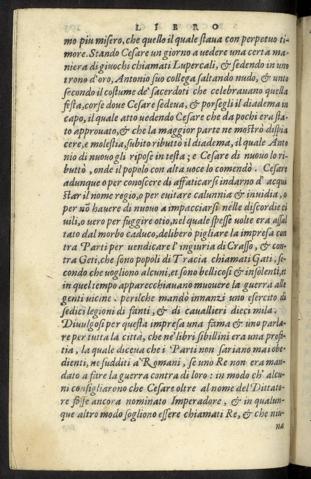 LIBRO
mo piu misero, che quello il quale stava con perpetuo ti-
more. Stando Cesare un giorno a vedere una certa ma-
niera di giuochi chiamati Lupercali, & sedendo in uno
trono d'oro, Antonio suo collega saltando nudo, & unto
secondo il costume de' sacerdoti che celebravano quella
festa, corse dove Cesare sedeva, & porsegli il diadema in
capo, il quale atto vedendo Cesare che da pochi era sta-
to approuato, & che la maggior parte ne mostrò dispia
cere, e molestia, subito ributtò il diadema, il quale Anto
nio di nuovo gli ripose in testa; e Cesare di nuovo lo ri-
buttò, onde il popolo con alta voce lo comendò. Cesare
adunque o per conoscere di affaticarsi indarno d'acqui
star il nome regio, o per euitare calunnia & inuidia, o
per nō hauere di nuovo a impacciarsi nelle discordie ci
uili, o vero per fuggire otio, nel quale spesse volte era assal
tato dal morbo caduco, deliberò pigliare la impresa con
tra Parti per uendicare l'ingiuria di Crasso, & con-
tra Geti, che sono popoli di Tracia chiamati Gati, se-
condo che vogliono alcuni, et sono bellicosi & insolenti, et
in quel tempo apparecchiauano muouere la guerra alle
genti uicine. perilche mandò innanzi uno esercito di
sedici legioni di fanti, & di cauallieri dieci mila.
Diuulgosi per questa impresa una fama & uno parla-
re per tutta la città, che ne' libri sibillini era una profe-
tia, la quale diceua che i Parti non sariano mai obe-
dienti, ne sudditi a' Romani, se uno Re non era man-
dato a fare la guerra contra di loro: in modo ch' alcu-
ni consigliarono che Cesare oltre al nome del Dittato-
re fosse ancora nominato Imperadore, & in qualun-
que altro modo sogliono essere chiamati Re, & che niu-
na